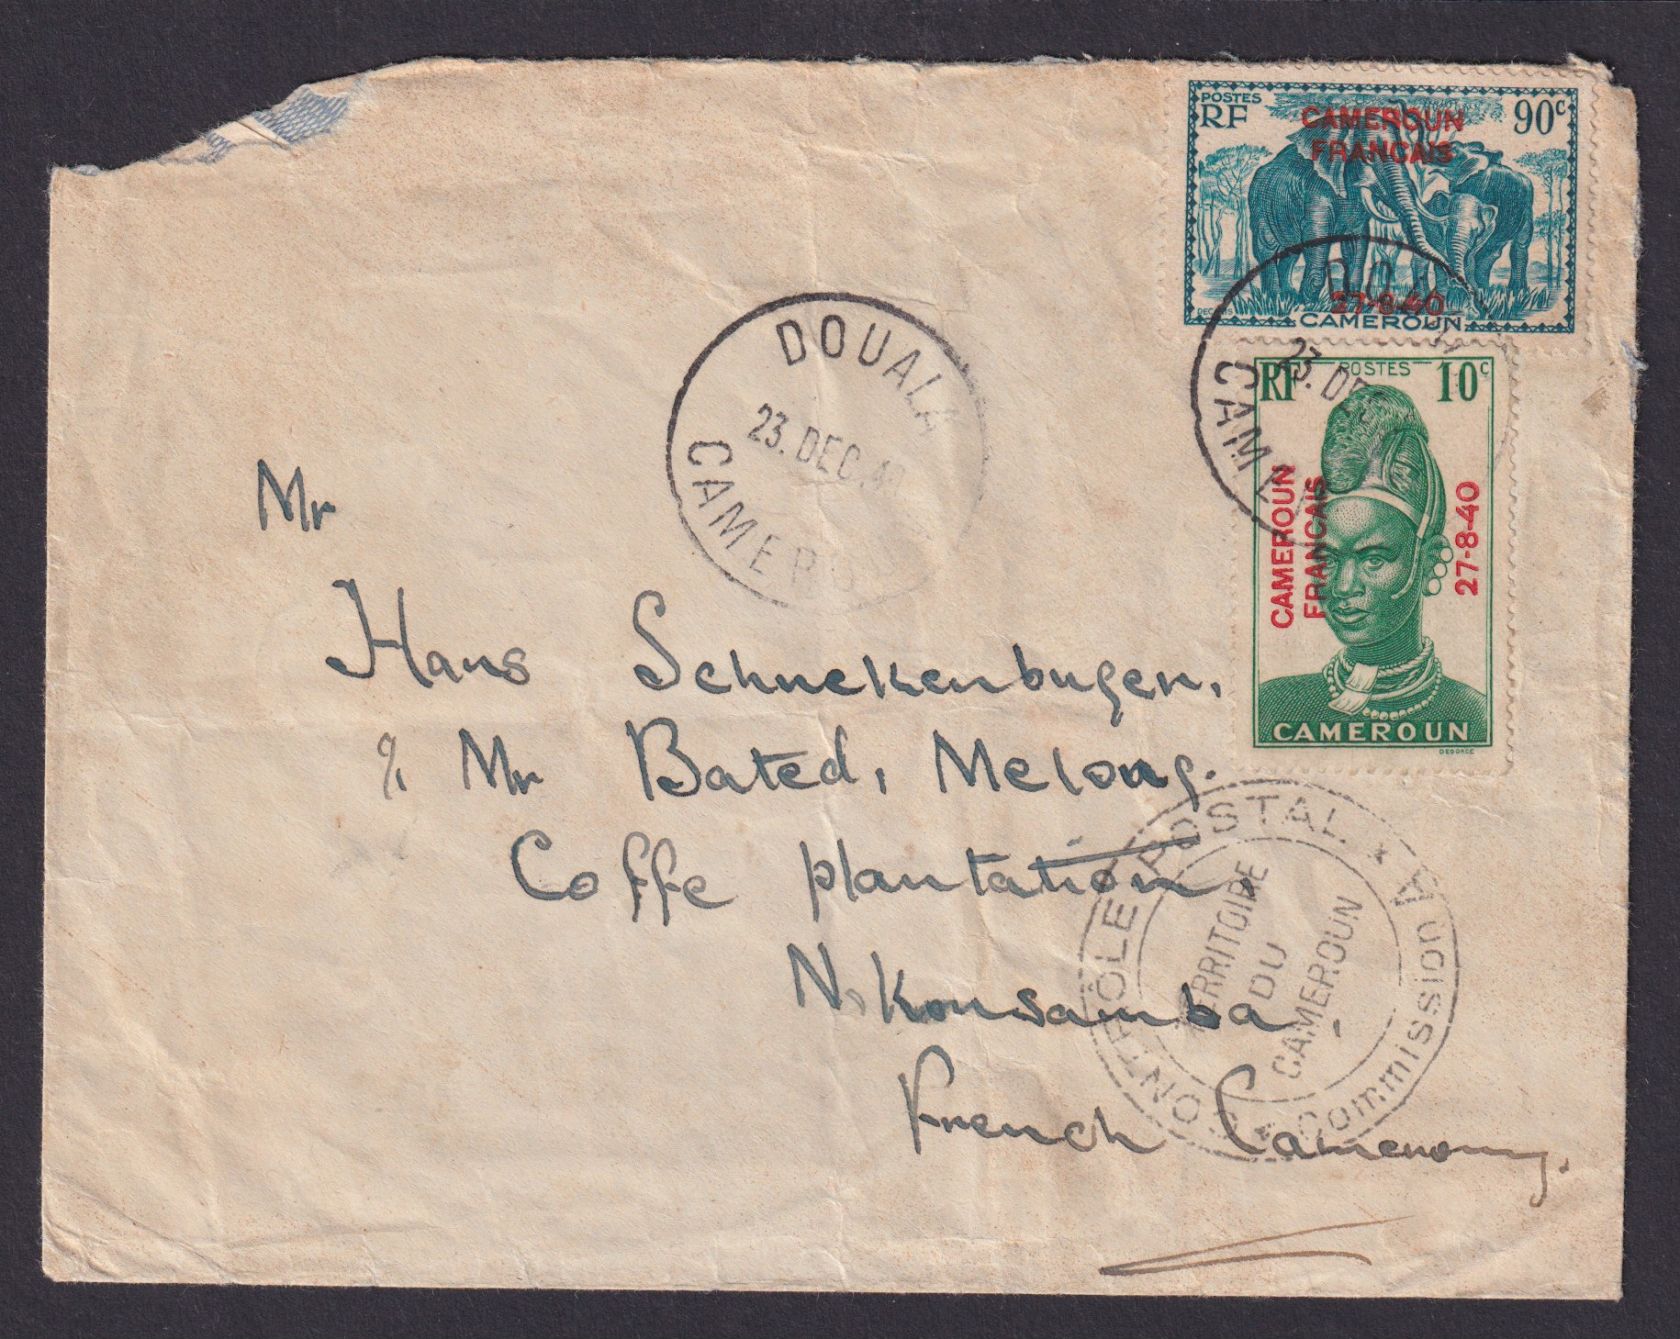 POSTES
RF
90c
CAMEROUN
FRANCAIS
27-8-40
CAMEROUN
DOUALA
23. DEC. 4
CAMEROUN
23. DE
CAME
RF
POSTES
10c
CAMEROUN
FRANCAIS
27-8-40
CAMEROUN
DEGORCE
Mr
Hans Schnekenburger,
% Mr Bated, Melong.
Coffe plantation.
N. Konsamba,
French Cameroun.
CONTRÔLE POSTAL * Commission A *
TERRITOIRE
DU
CAMEROUN